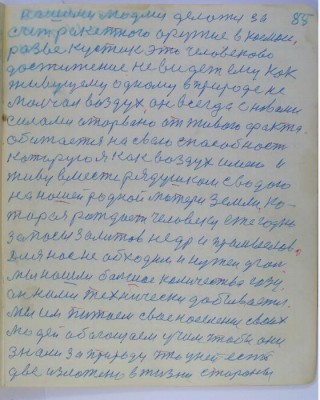 вашими людьми деложи за 85
счет ракетного оружие в космос,
разве кустик это человеково
достижение не видет ему как
живущему одному в природе не
молчал воздух, он всегда с новыми
силами оторвано от живого факта.
обижается на свою способность
которую я как воздух имею и
живу вместе рядушком с водою
на нашей родной матери земли, ко-
торая рождает человека ежегодно
запасы залитов недр и промыслов,
для нас необходим и нужен угол
мы нашли большие количества газу,
он нами технически добывается.
мы им топием свое население своих
людей обогощаем учим чтобы они
знали за природу что у ней есть
две изложено в жизни стороны